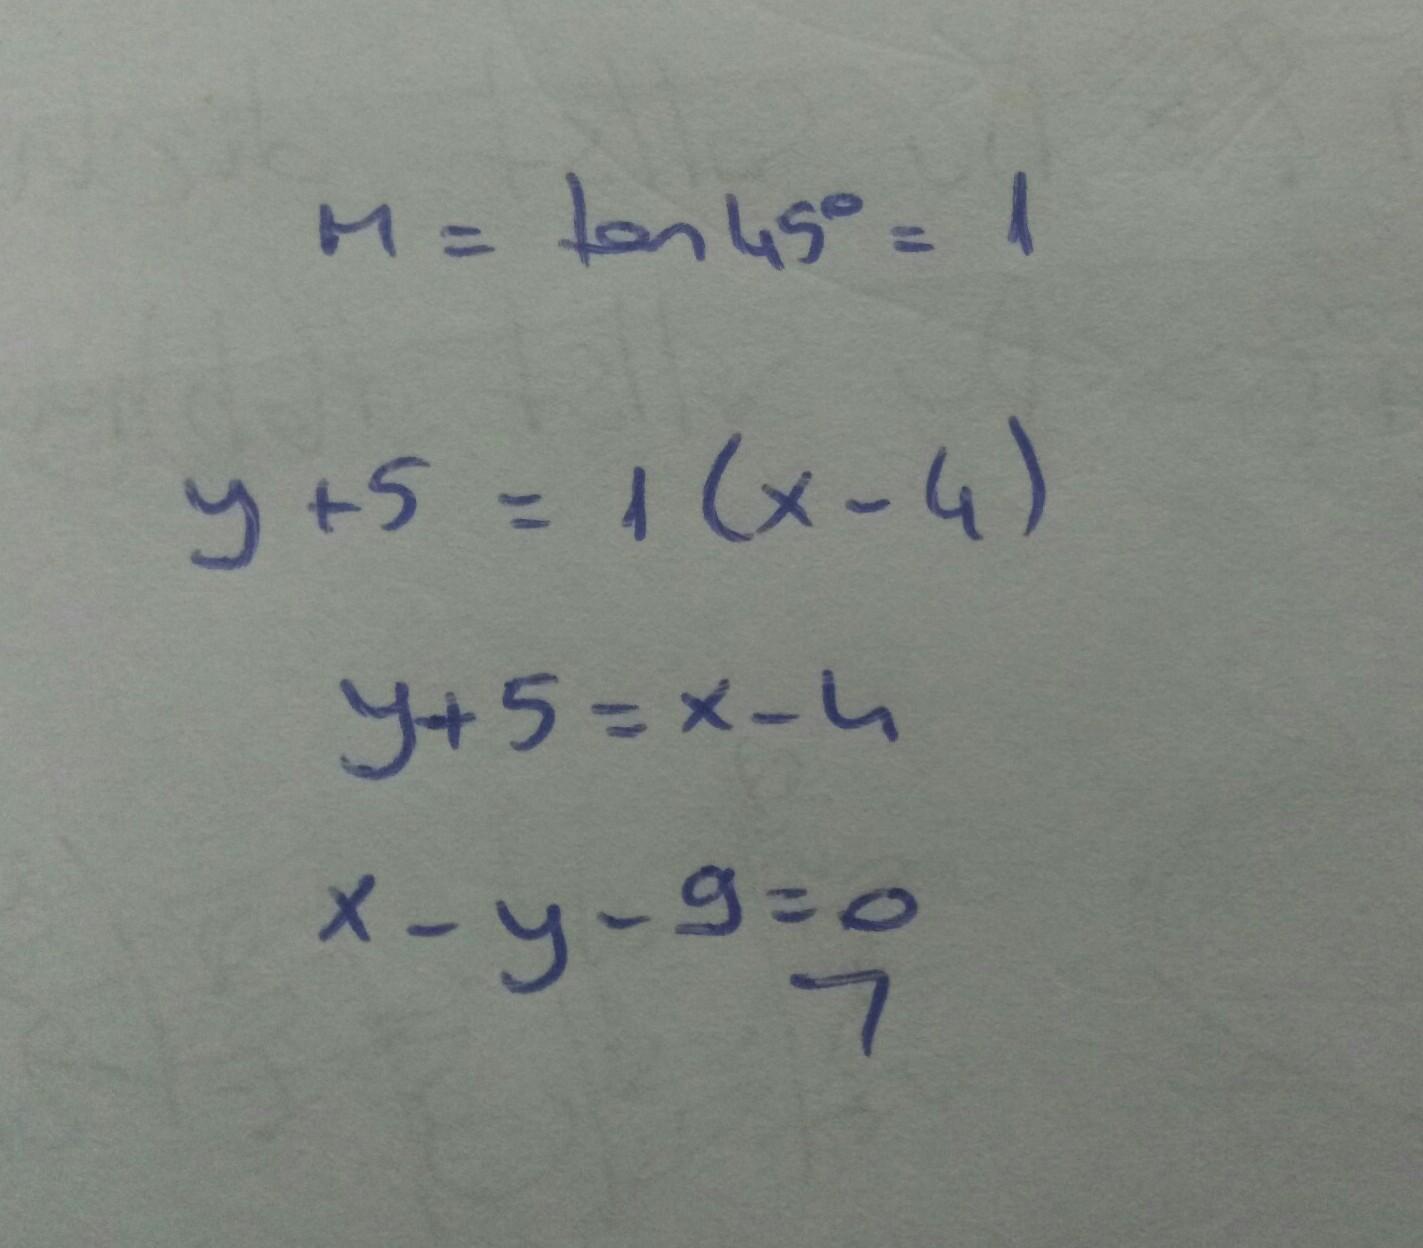 M = tan 45° = 1
y + 5 = 1 (x - 4)
y + 5 = x - 4
x - y - 9 = 0